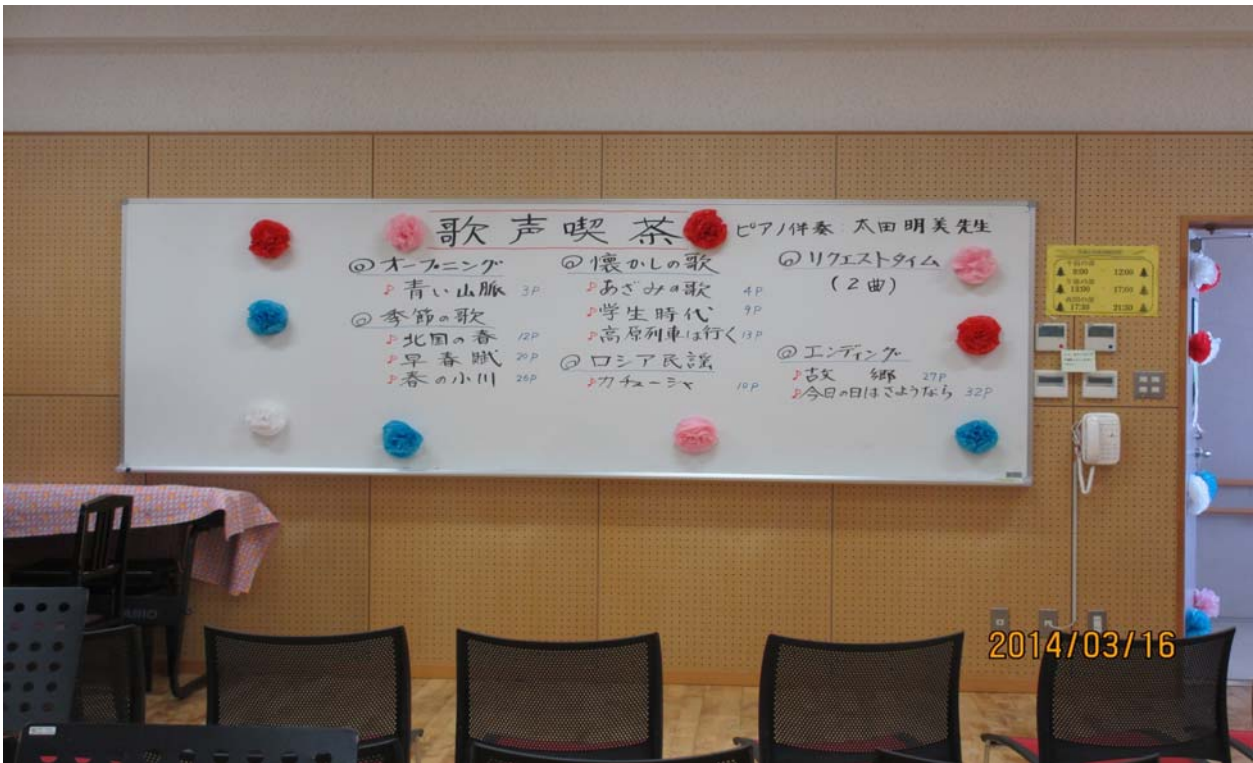 歌声喫茶
ピアノ伴奏:太田明美先生
◎オープニング
♪青い山脈 3P
◎季節の歌
♪北国の春 12P
♪早春賦 20P
♪春の小川 26P
◎懐かしの歌
♪あざみの歌 4P
♪学生時代 9P
♪高原列車は行く 13P
◎ロシア民謡
♪カチューシャ 10P
◎リクエストタイム
(2曲)
◎エンディング
♪故郷 27P
♪今日の日はさようなら 32P
午前の部
9:00 12:00
午後の部
13:00 17:00
夜間の部
17:30 21:30
2014/03/16